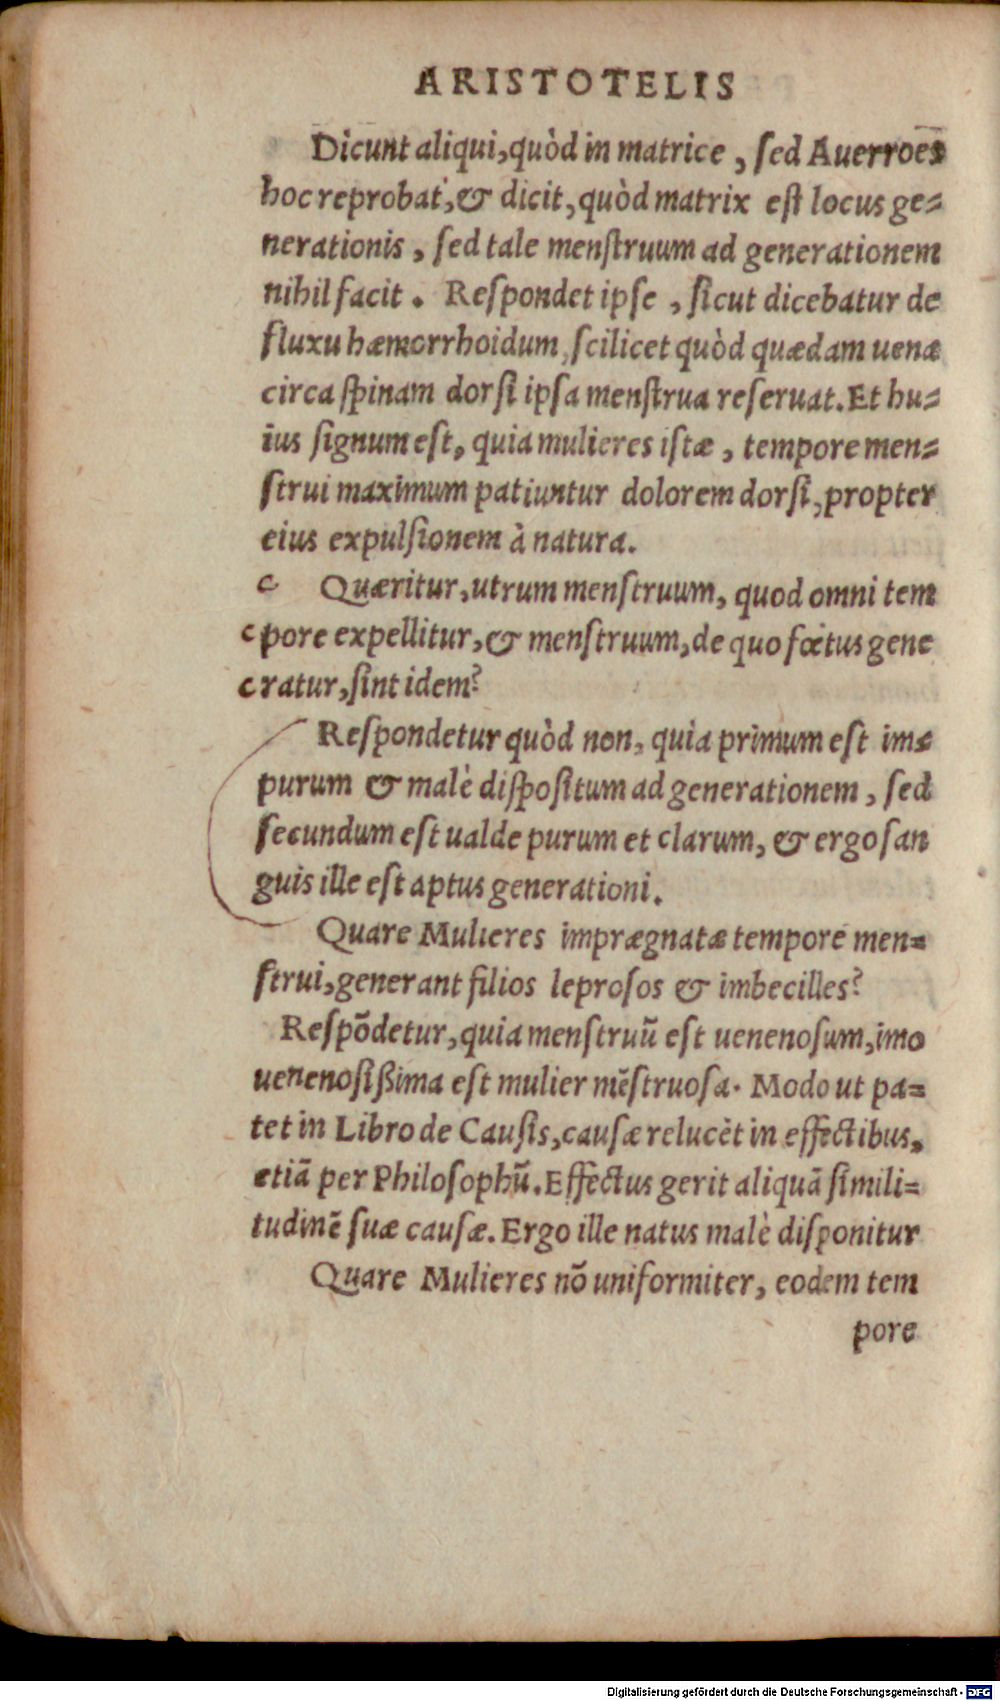 ARISTOTELIS
Dicunt aliqui, quòd in matrice, ſed Auerroes
hoc reprobat, & dicit, quòd matrix eſt locus ge-
nerationis, ſed tale menſtruum ad generationem
nihil facit. Reſpondet ipſe, ſicut dicebatur de
fluxu hæmorrhoidum, ſcilicet quòd quædam uenæ
circa ſpinam dorſi ipſa menſtrua reſeruat. Et hu-
ius ſignum eſt, quia mulieres iſtæ, tempore men-
ſtrui maximum patiuntur dolorem dorſi, propter
eius expulſionem à natura.
Quæritur, utrum menſtruum, quod omni tem
pore expellitur, & menſtruum, de quo fœtus gene
ratur, ſint idem?
Reſpondetur quòd non, quia primum eſt im-
purum & malè diſpoſitum ad generationem, ſed
ſecundum eſt ualde purum et clarum, & ergo ſan
guis ille eſt aptus generationi.
Quare Mulieres imprægnatæ tempore men-
ſtrui, generant filios leproſos & imbecilles?
Reſpõdetur, quia menſtruũ eſt uenenoſum, imo
uenenoſißima eſt mulier mẽſtruoſa. Modo ut pa-
tet in Libro de Cauſis, cauſæ relucẽt in effectibus,
etiã per Philoſophũ. Effectus gerit aliquã ſimili-
tudinẽ ſuæ cauſæ. Ergo ille natus malè diſponitur
Quare Mulieres nõ uniformiter, eodem tem
pore
Digitalisierung gefördert durch die Deutsche Forschungsgemeinschaft - DFG